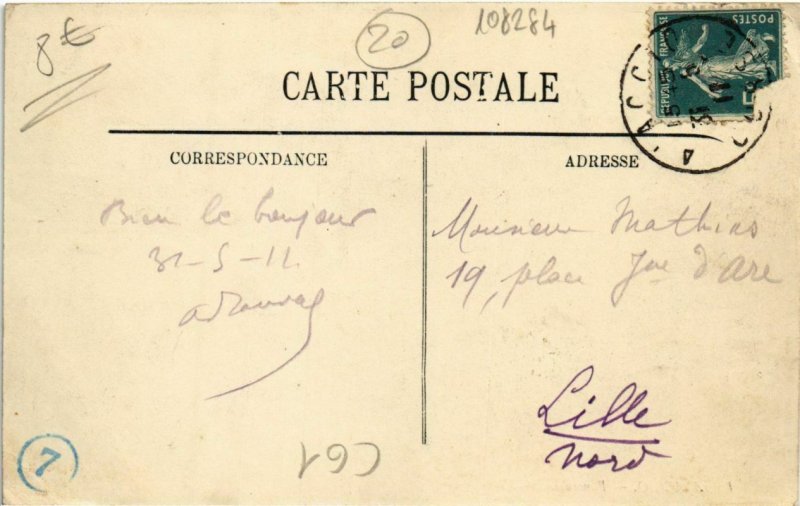 8€
20
108284
CARTE POSTALE
POSTES
CORRESPONDANCE
ADRESSE
Bien le bonjour
31-5-11
Monsieur Mathias
19, place Jne d'Arc
Lille
Nord
7
C61